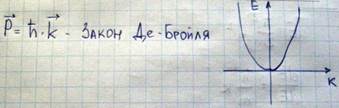 P⃗ = ħ · k⃗ - Закон Де-Бройля
E
K